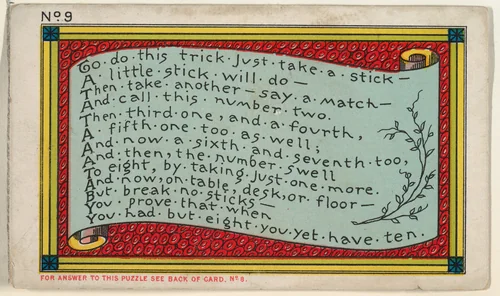 No. 9
To do this trick just take a stick—
A little stick will do—
Then take another—say a match—
And call this number two.
Then third one, and a fourth,
A fifth one too as well;
And now a sixth and seventh too,
And then, the number swell
To eight, by taking just one more.
And now on table, desk, or floor—
But break no sticks—
You prove that when
You had but eight you yet have ten.
FOR ANSWER TO THIS PUZZLE SEE BACK OF CARD, No. 8.